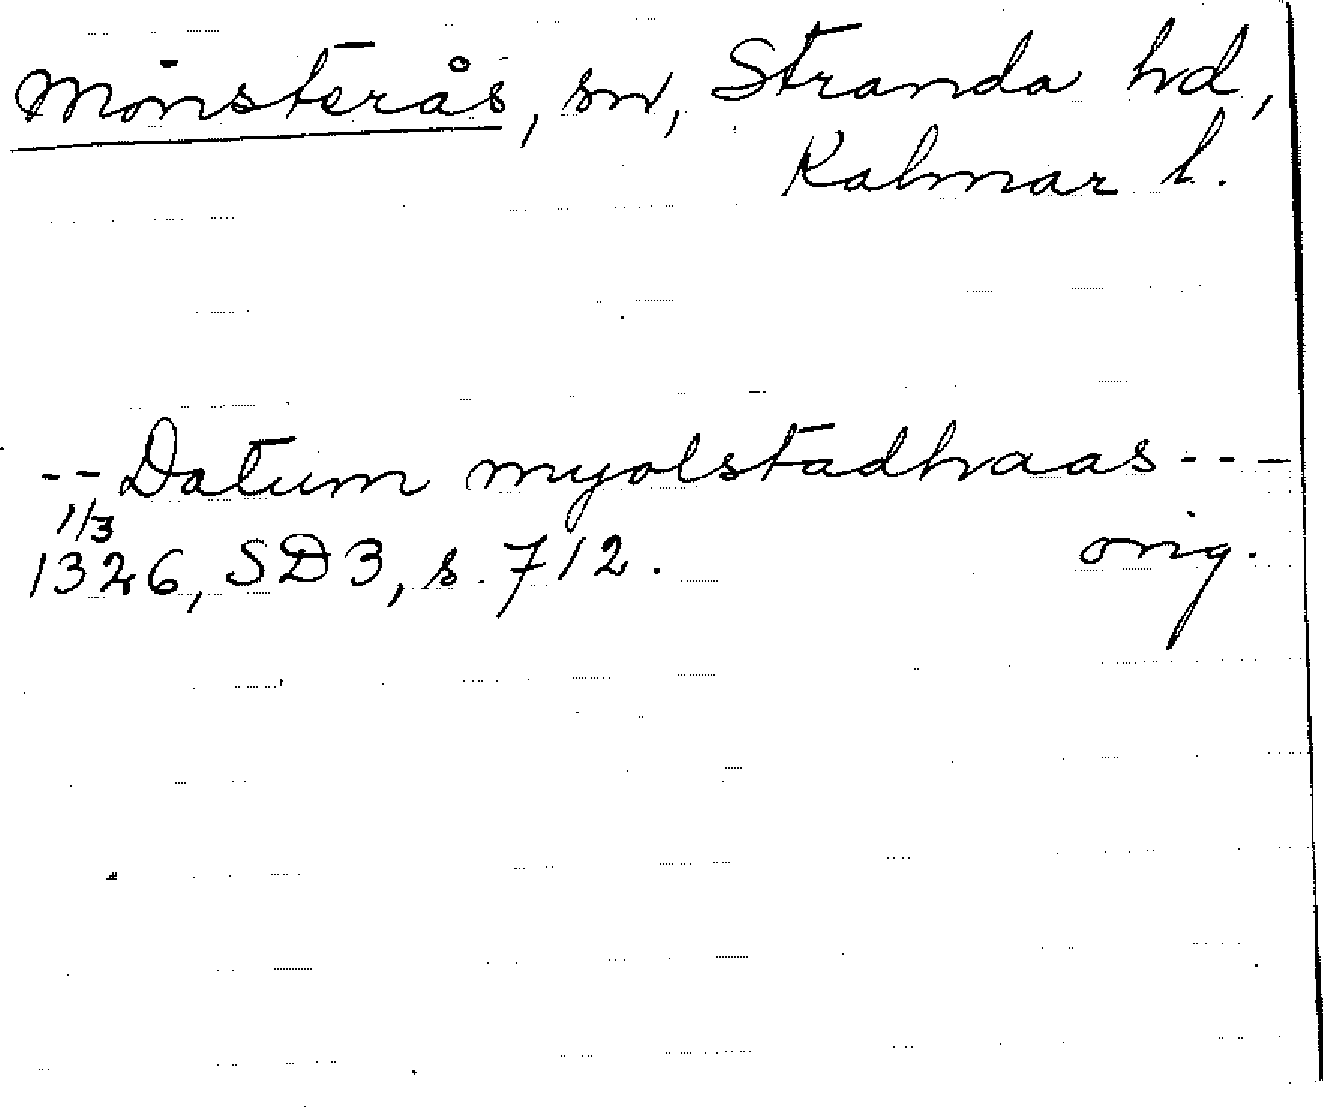 Mönsterås, sn, Stranda hd,
Kalmar l.
-- Datum myolstadhaas ---
1/3
1326, SD3, s. 712. orig.